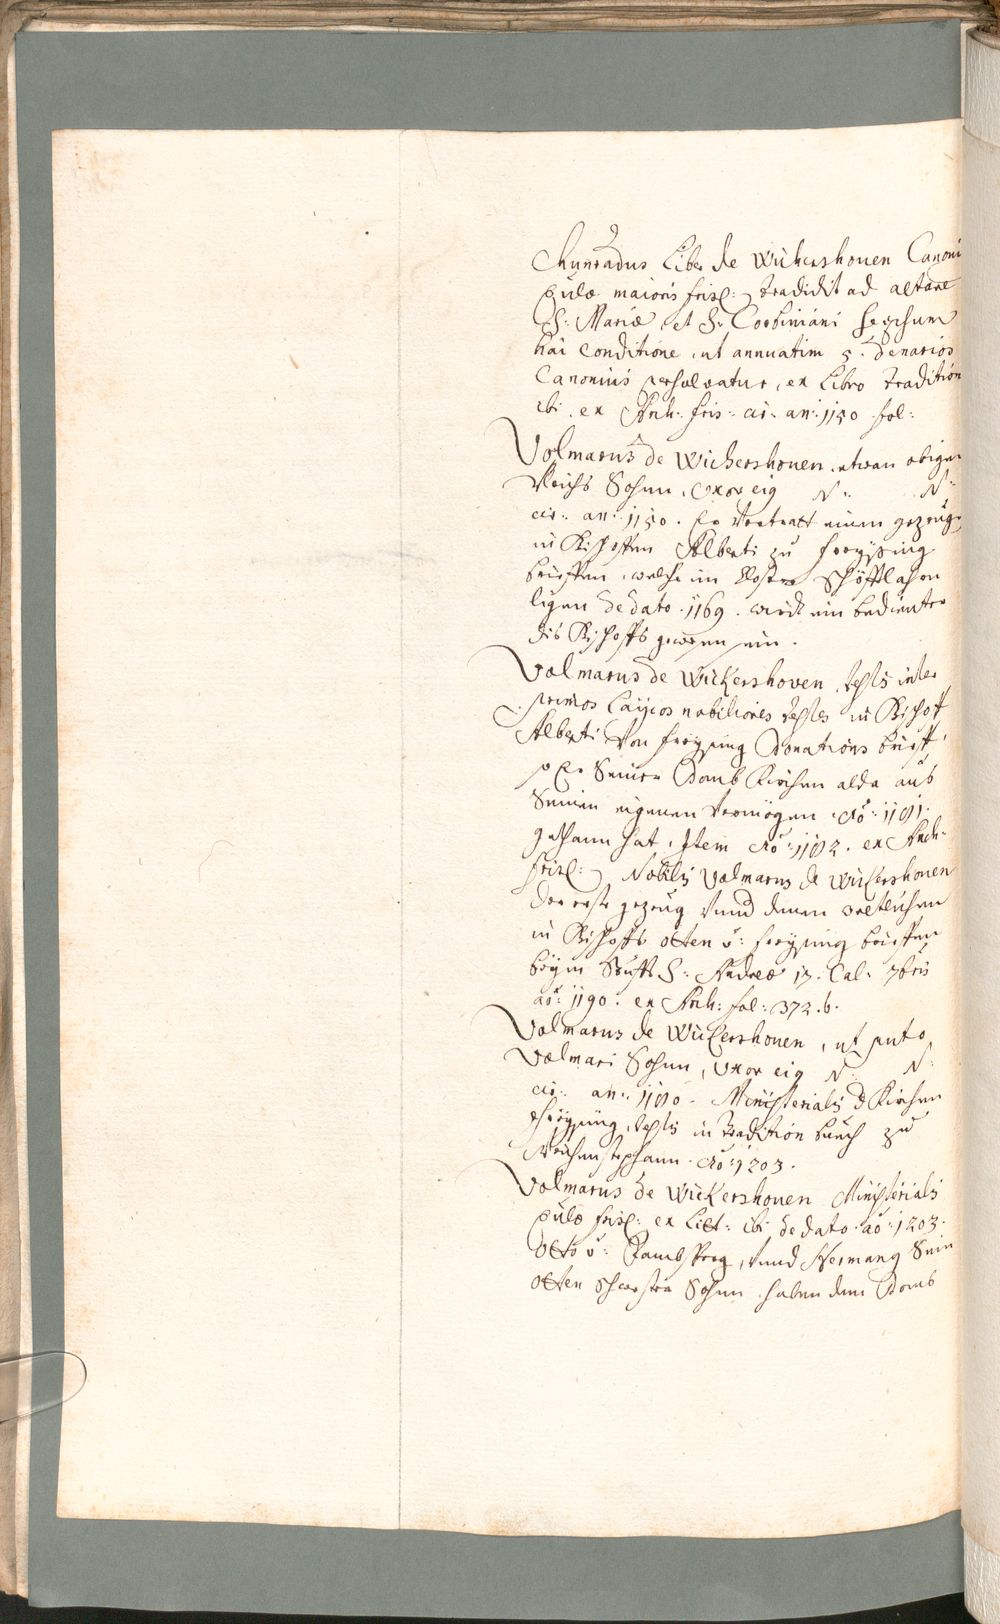 Chunradus Liber de Wickershouen Canoni
Eculae maioris frisg: tradidit ad altare
S: Mariae et S: Corbiniani
hac conditione, ut annuatim 5. denarios
Canonicis persolvatur, ex Libro tradition
ibi. ex Arch: fris: cir: an: 1150. fol:
Volmarus de Wickershouen, etwan obigen
Sohn, Uxor eig N: N:
cir: an: 1150. Er Vertratt einen gezeug
in Bischoffen Alberti zu freysing
brieffen, welche im Closter Schöfftlahrn
ligen de dato. 1169. wirdt ein bedienter
dis Bischoffs gewesen sein.
Volmarus de Wickershoven, testis inter
primos Laijcos nobiliores testes in Bischoff
Alberti Von freysing Donations brieff,
so Er Seiner Domb Kirchen alda aus
Seinen eigenen Vermögen Ao: 1181.
gethann hat, Item Ao: 1182. ex Arch:
frisg: Nobilis Volmarus de Wickershouen
der erste gezeug Vnnd denen weltlichen
in Bischoffs Otten v: freysing brieffen
beym Stifft S: Andreae 17. Cal: 7bris
ao: 1190. ex Arch: fol: 372. b.
Volmarus de Wickershouen, ut puto
Volmari Sohn, Uxor eig N: N:
cir: an: 1180. Ministerialis d Kirchen
freysing, testis in Tradition buech zu
Weichenstephann. Ao: 1203.
Volmarus de Wickershouen Ministerialis
Eculae frisg: ex Litt: ibi de dato ao: 1203.
Otto v: Vnnd Hermang Sein
Otten Schwester Sohn haben dem Domb